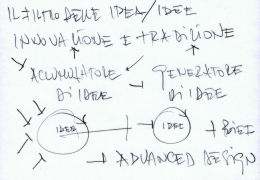 IL FILTRO DELLE IDEA/IDEE
INNOVAZIONE E TRADIZIONE
ACCUMULATORE GENERATORE
DI IDEE DI IDEE
IDEE IDEE
ADVANCED DESIGN